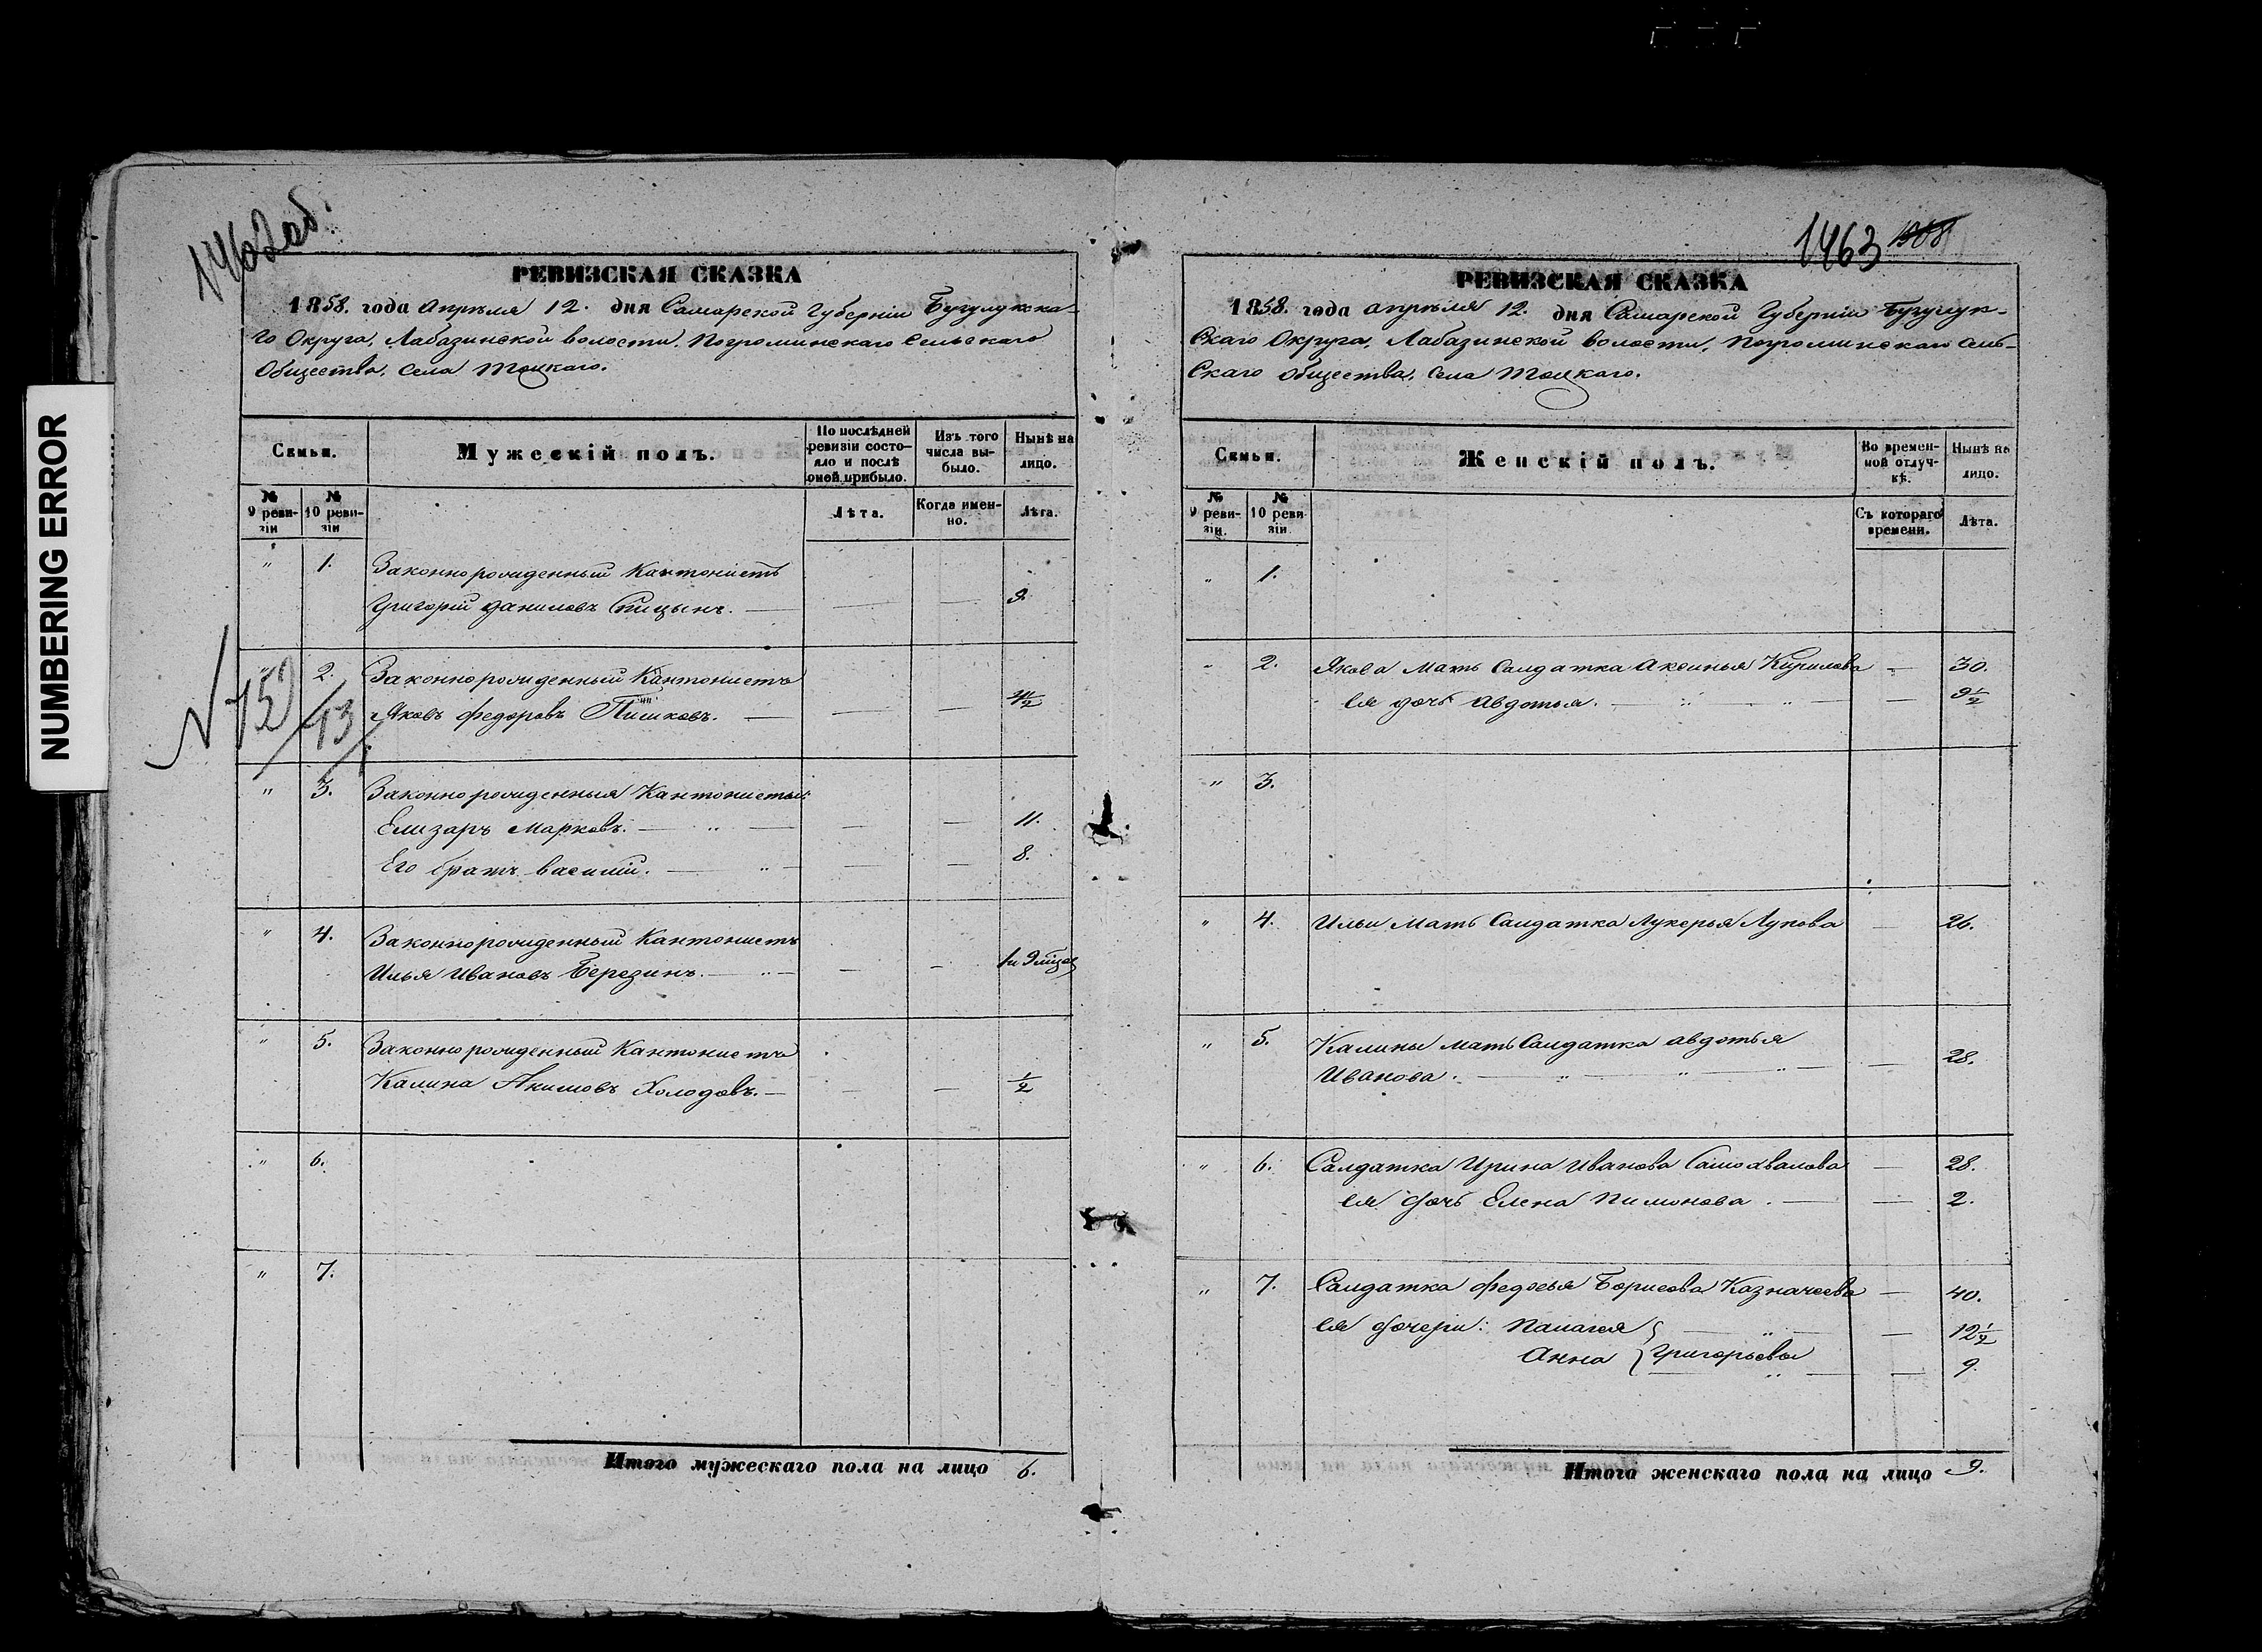 NUMBERING ERROR
1462 об.
РЕВИЗСКАЯ СКАЗКА
1858. года Апрѣля 12. дня Самарской Губерніи Бузулукска-
го Округа, Лабазинской волости, Погроминскаго Сельскаго
Общества, Села Тоцкаго.
Семьи. Мужескій полъ. По послѣдней ревизіи состояло и послѣ оной прибыло. Изъ того числа выбыло. Нынѣ на лицо.
№ 9 ревизіи № 10 ревизіи Лѣта. Когда именно. Лѣта.
" 1. Законнорожденный Кантонистъ
Григорій Даниловъ Спицынъ. — — — 9.
" 2. Законнорожденный Кантонистъ
Яковъ Федоровъ Пишковъ. — — —
" 3. Законнорожденныя Кантонисты:
Елизаръ Марковъ. — " — — — 11.
Его братъ Василій. — " — — — 8.
" 4. Законнорожденный Кантонистъ
Илья Ивановъ Березинъ. — " — — — 1 и 9 мѣсяц
" 5. Законнорожденный Кантонистъ
Калина Акимовъ Холодовъ. — — — 1/2
" 6.
" 7.
Итого мужескаго пола на лицо 6.
1463
РЕВИЗСКАЯ СКАЗКА
1858. года апрѣля 12. дня Самарской Губерніи Бузулук-
скаго Округа, Лабазинской волости, Погроминскаго Сель-
скаго общества, Села Тоцкаго.
Семьи. Женскій полъ. Во временной отлучкѣ. Нынѣ на лицо.
№ 9 ревизіи. № 10 ревизіи Съ котораго времени. Лѣта.
" 1.
" 2. Якова Мать Салдатка Аксинья Кирилова — 30.
Ея дочь Авдотья. — " — " — — 9 1/2
" 3.
" 4. Ильи Мать Салдатка Лукерья Лупова — 26.
" 5. Калины мать Салдатка авдотья
Иванова. — " — " — " — — 28.
" 6. Салдатка Ирина Иванова Самохвалова — 28.
Ея дочь Елена Пимонова. — — 2.
" 7. Салдатка Федосья Борисова Казначеева — 40.
Ея дочери: Палагея } — " — — 12 1/2
Анна } Григорьевы — " — — 9.
Итого женскаго пола на лицо 9.